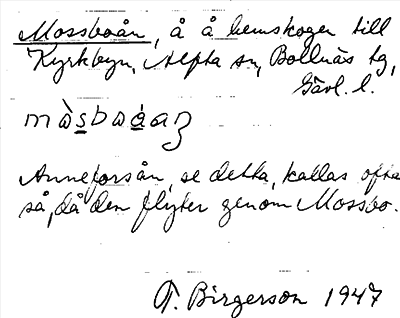 Mossboån, å å hemskogen till
Kyrkbyn, Alfta sn, Bollnäs tg,
Gävl. l.
Anneforsån, se detta, kallas ofta
så, då den flyter genom Mossbo.
T. Birgerson 1947